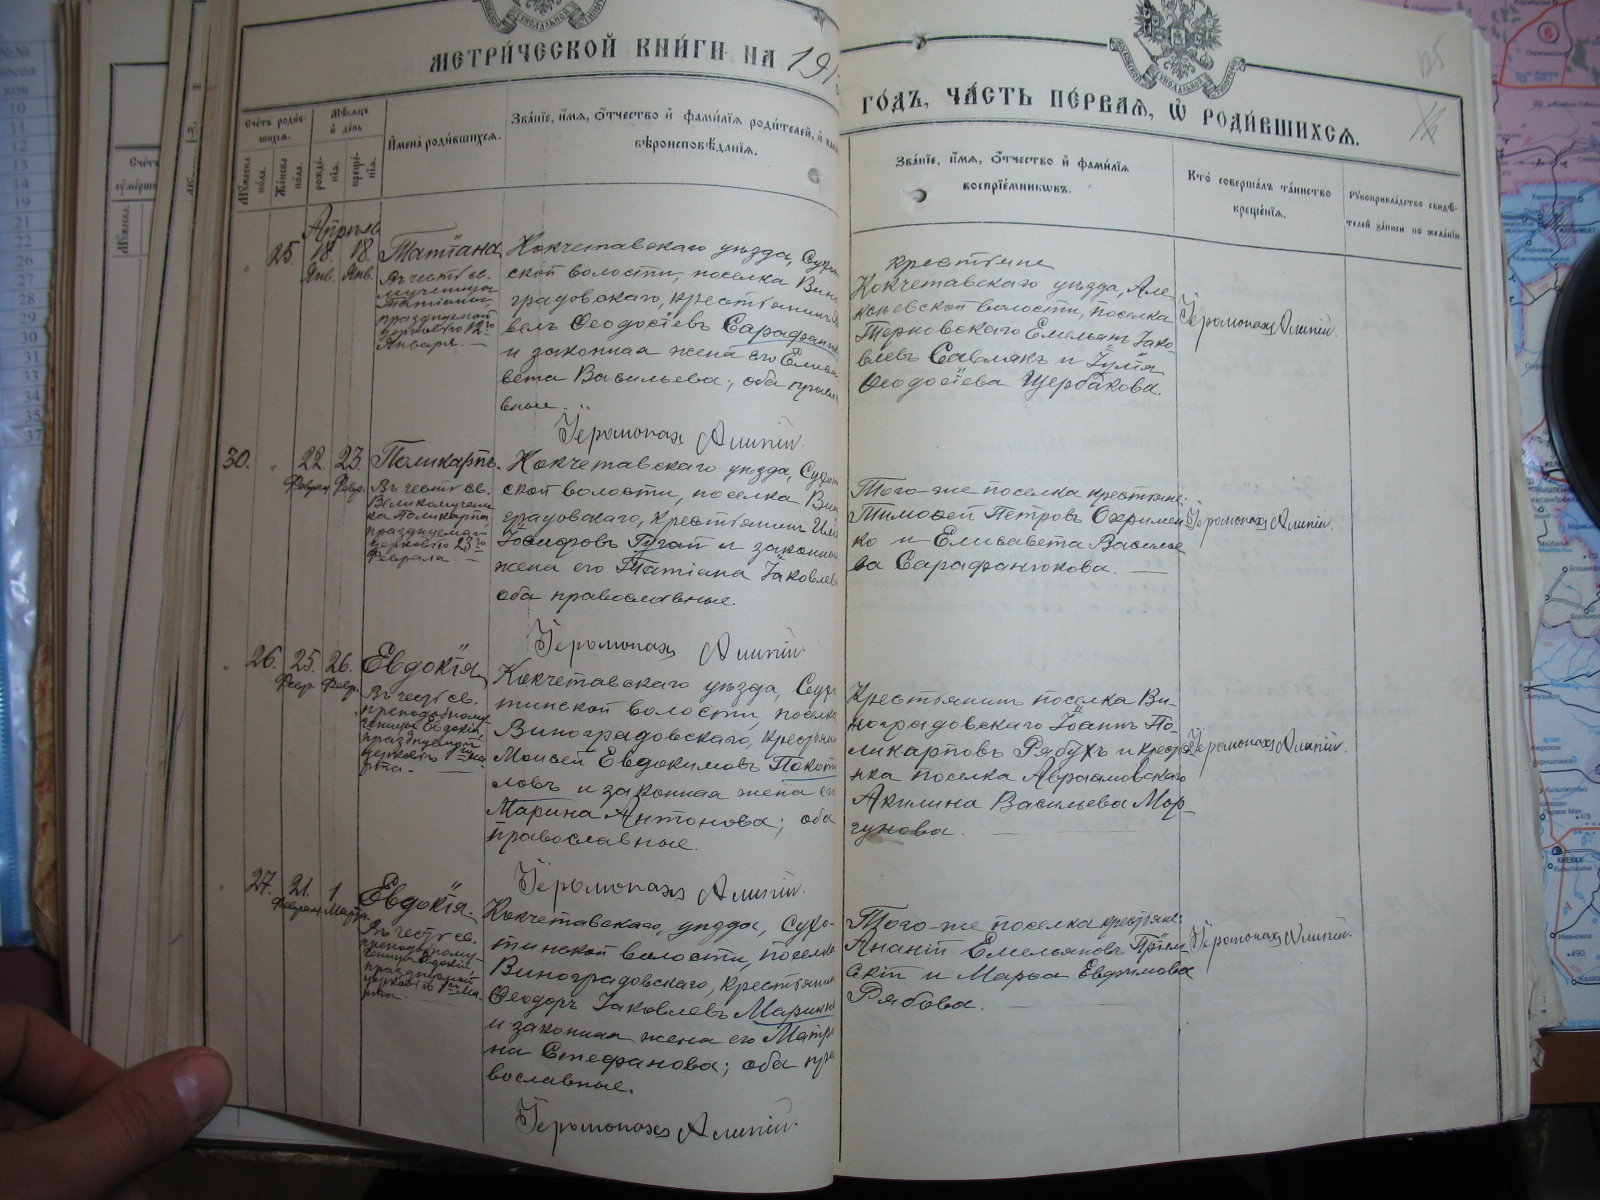 МЕТРИ́ЧЕСКОЙ КНИ́ГИ НА 191
ГО́ДЪ, ЧА́СТЬ ПЕ́РВАѦ, Ѡ҆ РОДИ́ВШИХСѦ.
Сче́тъ роди́в-
шихсѧ.
Мѣ́сѧцъ
и҆ де́нь
Мꙋ́жеска
по́ла.
Же́нска
по́ла.
рожде́-
нїѧ.
креще́-
нїѧ.
И҆мена̀ роди́вшихсѧ.
Зва́нїе, и҆́мѧ, ѻ҆́тчество и҆ фами́лїѧ роди́телей, и҆
вѣроисповѣ́данїѧ.
Зва́нїе, и҆́мѧ, ѻ҆́тчество и҆ фами́лїѧ
воспрїе́мникѡвъ.
Кто̀ соверша́лъ та́инство
креще́нїѧ.
Рꙋкоприкла́дство свидѣ́-
телей за́писи по жела́нїю.
Апрѣль
25. 18. 18. Татіана
Янв. Янв.
Въ честь св.
мученицы
Татіаны,
празднуемой
церковію 12го
Января. —
Кокчетавскаго уѣзда, Сухо
ской волости, поселка Вин
градовскаго, крестьянинъ
велъ Ѳеодосіевъ Сарафан
и законная жена его Елиса
вета Васильева; оба право
вные.
Іеромонахъ Алипій.
крестьяне
Кокчетавскаго уѣзда, Але
ксѣевской волости, поселка
Терновскаго Емельянъ Іако-
влевъ Савлякъ и Іулія
Ѳеодосіева Щербакова.
Іеромонахъ Алипій.
30. 22. 23. Поликарпъ.
Феврал. Февр.
Въ честь св.
Великомучени
ка Поликарпа
празднуемаго
церковію 23го
Февраля. —
Кокчетавскаго уѣзда, Сухо
ской волости, поселка Вин
градовскаго, крестьянинъ
Іосифовъ Гугаш и законная
жена его Татіана Іаковлева
оба православные.
Іеромонахъ Алипій.
Того-же поселка крестьяне:
Тимоѳей Петровъ Охримен
ко и Елисавета Василье
ва Сарафанюкова. —
Іеромонахъ Алипій.
26. 25. 26. Евдокія
Февр. Февр.
Въ честь св.
преподобному-
ченицы Евдокіи,
празднуемой
церковію 1го Ма-
рта. —
Кокчетавскаго уѣзда, Сухо
тинской волости, поселка
Виноградовскаго, крестьянин
Моисей Евдокимовъ Покоти
ловъ и законная жена его
Марина Антонова; оба
православные.
Іеромонахъ Алипій.
Крестьянинъ поселка Ви-
ноградовскаго Іоаннъ По-
ликарповъ Рябухъ и крестья
нка поселка Аврамовскаго
Акилина Васильева Мор-
гунова. —
Іеромонахъ Алипій.
27. 21. 1 Евдокія.
Феврал. Марта.
Въ честь св.
преподобному-
ченицы Евдокіи,
празднуемой
церковію 1го Ма-
рта.
Кокчетавскаго, уѣзда, Сухо-
тинской волости, поселка
Виноградовскаго, крестьянин
Ѳеодоръ Іаковлевъ Марин
и законная жена его Матро
на Стефанова; оба пра
вославные.
Іеромонахъ Алипій.
Того-же поселка крестьяне:
Ананій Емельяновъ
скій и Марѳа Евфимова
Рябова. —
Іеромонахъ Алипій.